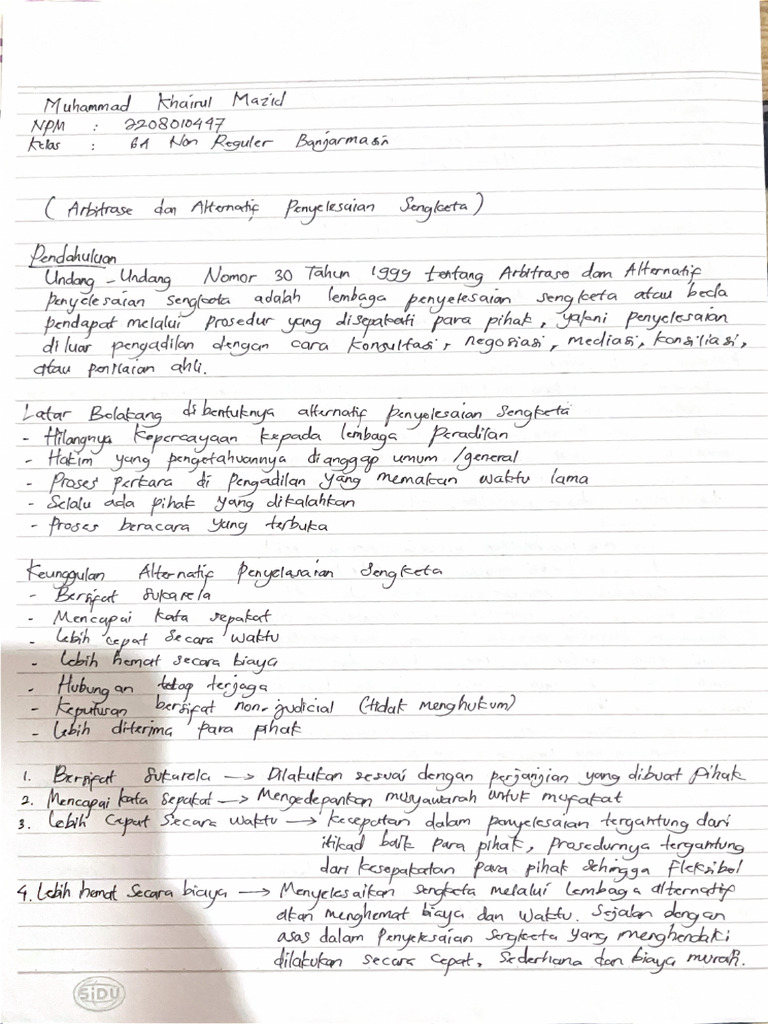 Muhammad Khairul Mazid
NPM : 2208010447
Kelas : 6A Non Reguler Banjarmasin
( Arbitrase dan Alternatif Penyelesaian Sengketa )
Pendahuluan
Undang - Undang Nomor 30 Tahun 1999 tentang Arbitrase dan Alternatif
penyelesaian sengketa adalah lembaga penyelesaian sengketa atau beda
pendapat melalui prosedur yang disepakati para pihak, yakni penyelesaian
diluar pengadilan dengan cara konsultasi, negosiasi, mediasi, konsiliasi,
atau penilaian ahli.
Latar Belakang dibentuknya alternatif penyelesaian sengketa
- Hilangnya kepercayaan kepada lembaga Peradilan
- Hakim yang pengetahuannya dianggap umum /general
- Proses perkara di Pengadilan yang memakan waktu lama
- Selalu ada pihak yang dikalahkan
- Proses beracara yang terbuka
Keunggulan Alternatif Penyelesaian Sengketa
- Bersifat sukarela
- Mencapai kata sepakat
- Lebih cepat secara waktu
- Lebih hemat secara biaya
- Hubungan tetap terjaga
- Keputusan bersifat non-judicial (tidak menghukum)
- Lebih diterima para pihak
1. Bersifat Sukarela → Dilakukan sesuai dengan perjanjian yang dibuat pihak
2. Mencapai kata sepakat → Mengedepankan musyawarah untuk mufakat
3. Lebih Cepat Secara waktu → kecepatan dalam penyelesaian tergantung dari
itikad baik para pihak, prosedurnya tergantung
dari kesepakatan para pihak sehingga fleksibel
4. Lebih hemat Secara biaya → Menyelesaikan sengketa melalui lembaga alternatif
akan menghemat biaya dan waktu. Sejalan dengan
asas dalam Penyelesaian Sengketa yang menghendaki
dilakukan secara cepat, sederhana dan biaya murah.
SiDU